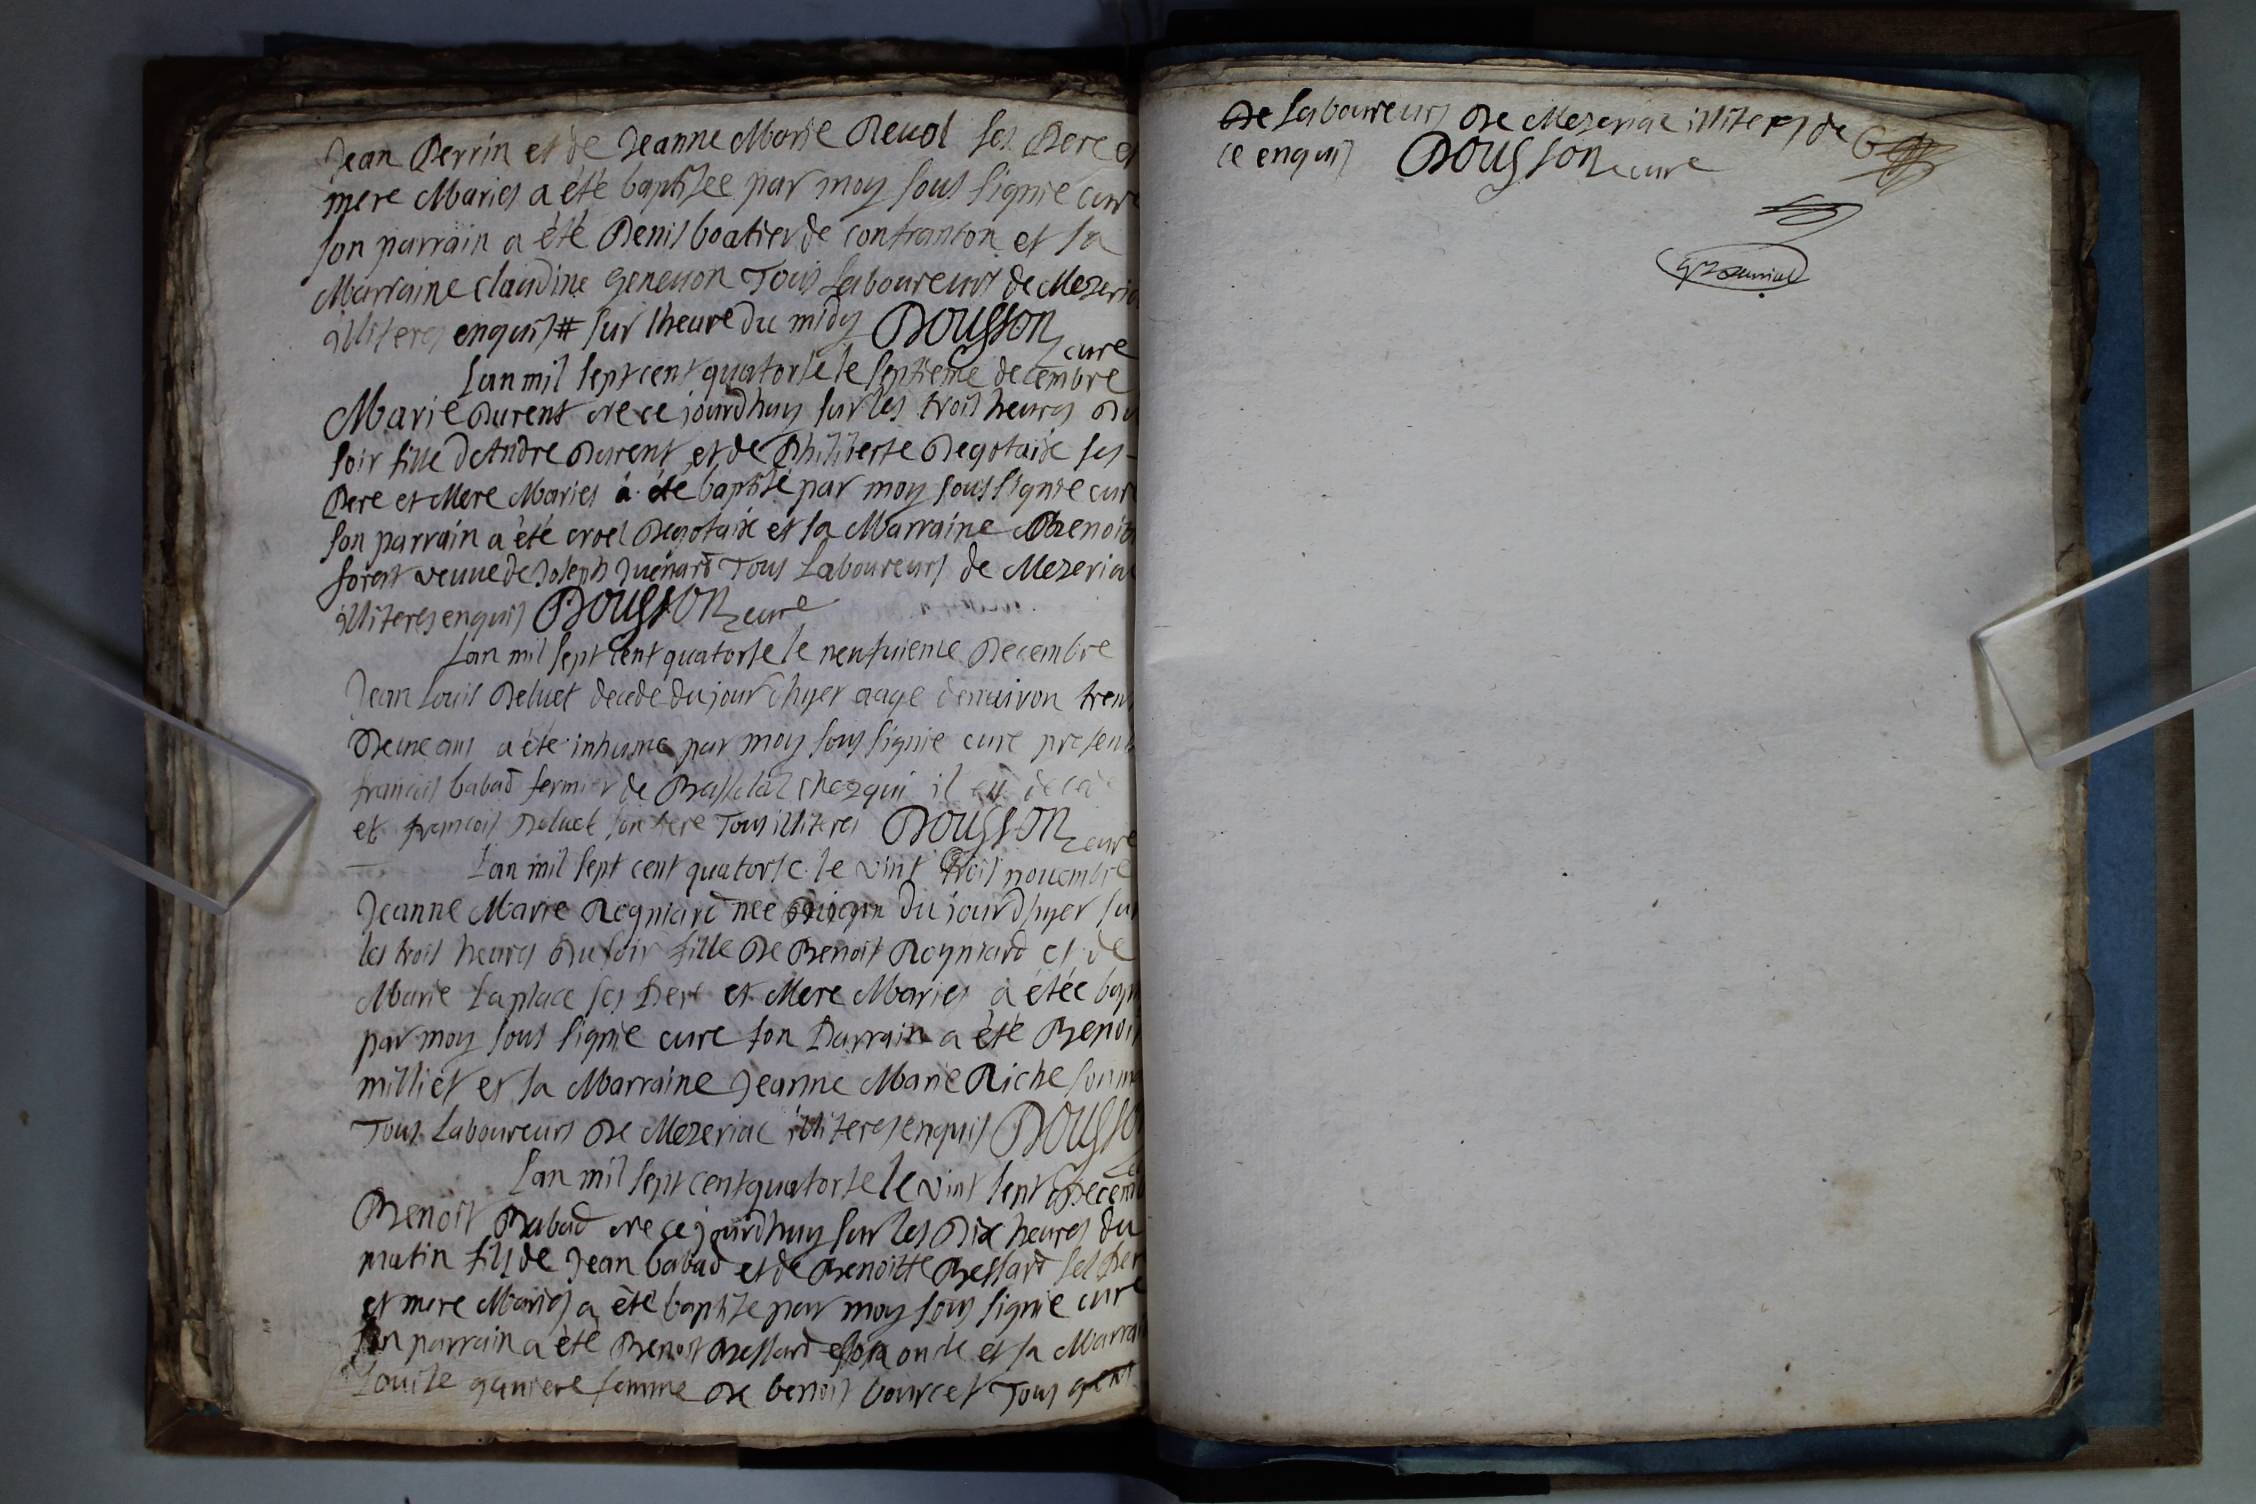 Jean Perrin et de Jeanne Marie Revol ses Pere et
mere Maries a été baptisee par moy sous signie cure
son parrain a été Denis boatier de confranson et sa
Marraine claudine genevon Tous Laboureurs de Mezeria
illiteres enquis # sur lheure du midy Dousson cure
Lan mil sept cent quatorse le septieme decembre
Marie Durent nee ce jourdhuy sur les trois heures du
soir fille dAndre Durent et de Philiberte Degotaix ses
Pere et Mere Maries a été baptisé par moy sous signie cure
son parrain a été Degotaix et sa Marraine Benoite
forest veuve de Joseph Juenard Tous Laboureurs de Mezeriac
illiteres enquis Dousson cure
Lan mil sept cent quatorse le neufvieme Decembre
Jean Louis Deluet decede du jour dhyer aage denuiron tren
Deux ans a été inhume par moy sous signie cure presen
francois babad fermier de chez qui il est decede
et francois Deluet son frere Tous illiteres Dousson cure
Lan mil sept cent quatorse le vint trois nouembre
Jeanne Marie Regniard née du jourdhyer sur
les trois heures du soir fille De Benoit Regniard et de
Marie Laplace ses Pere et Mere Maries a étée bap
par moy sous signie cure son Parrain a été Benoit
milliet et sa Marraine Jeanne Marie Riche
Tous Laboureurs De Mezeriac illiteres enquis Dousso
Lan mil sept cent quatorse le vint sept Decem
Benoit Babad ne ce jourdhuy sur les Dix heures du
matin fils de Jean babad et de Benoitte Bessard ses Per
et mere Maries a été baptize par moy sous signie cure
son parrain a été Benoit Bessard son oncle et sa Marrai
Louise ganiere femme De benoit bourcet Tous
De Laboureurs De Mezeriac illiteres de
ce enquis Dousson cure